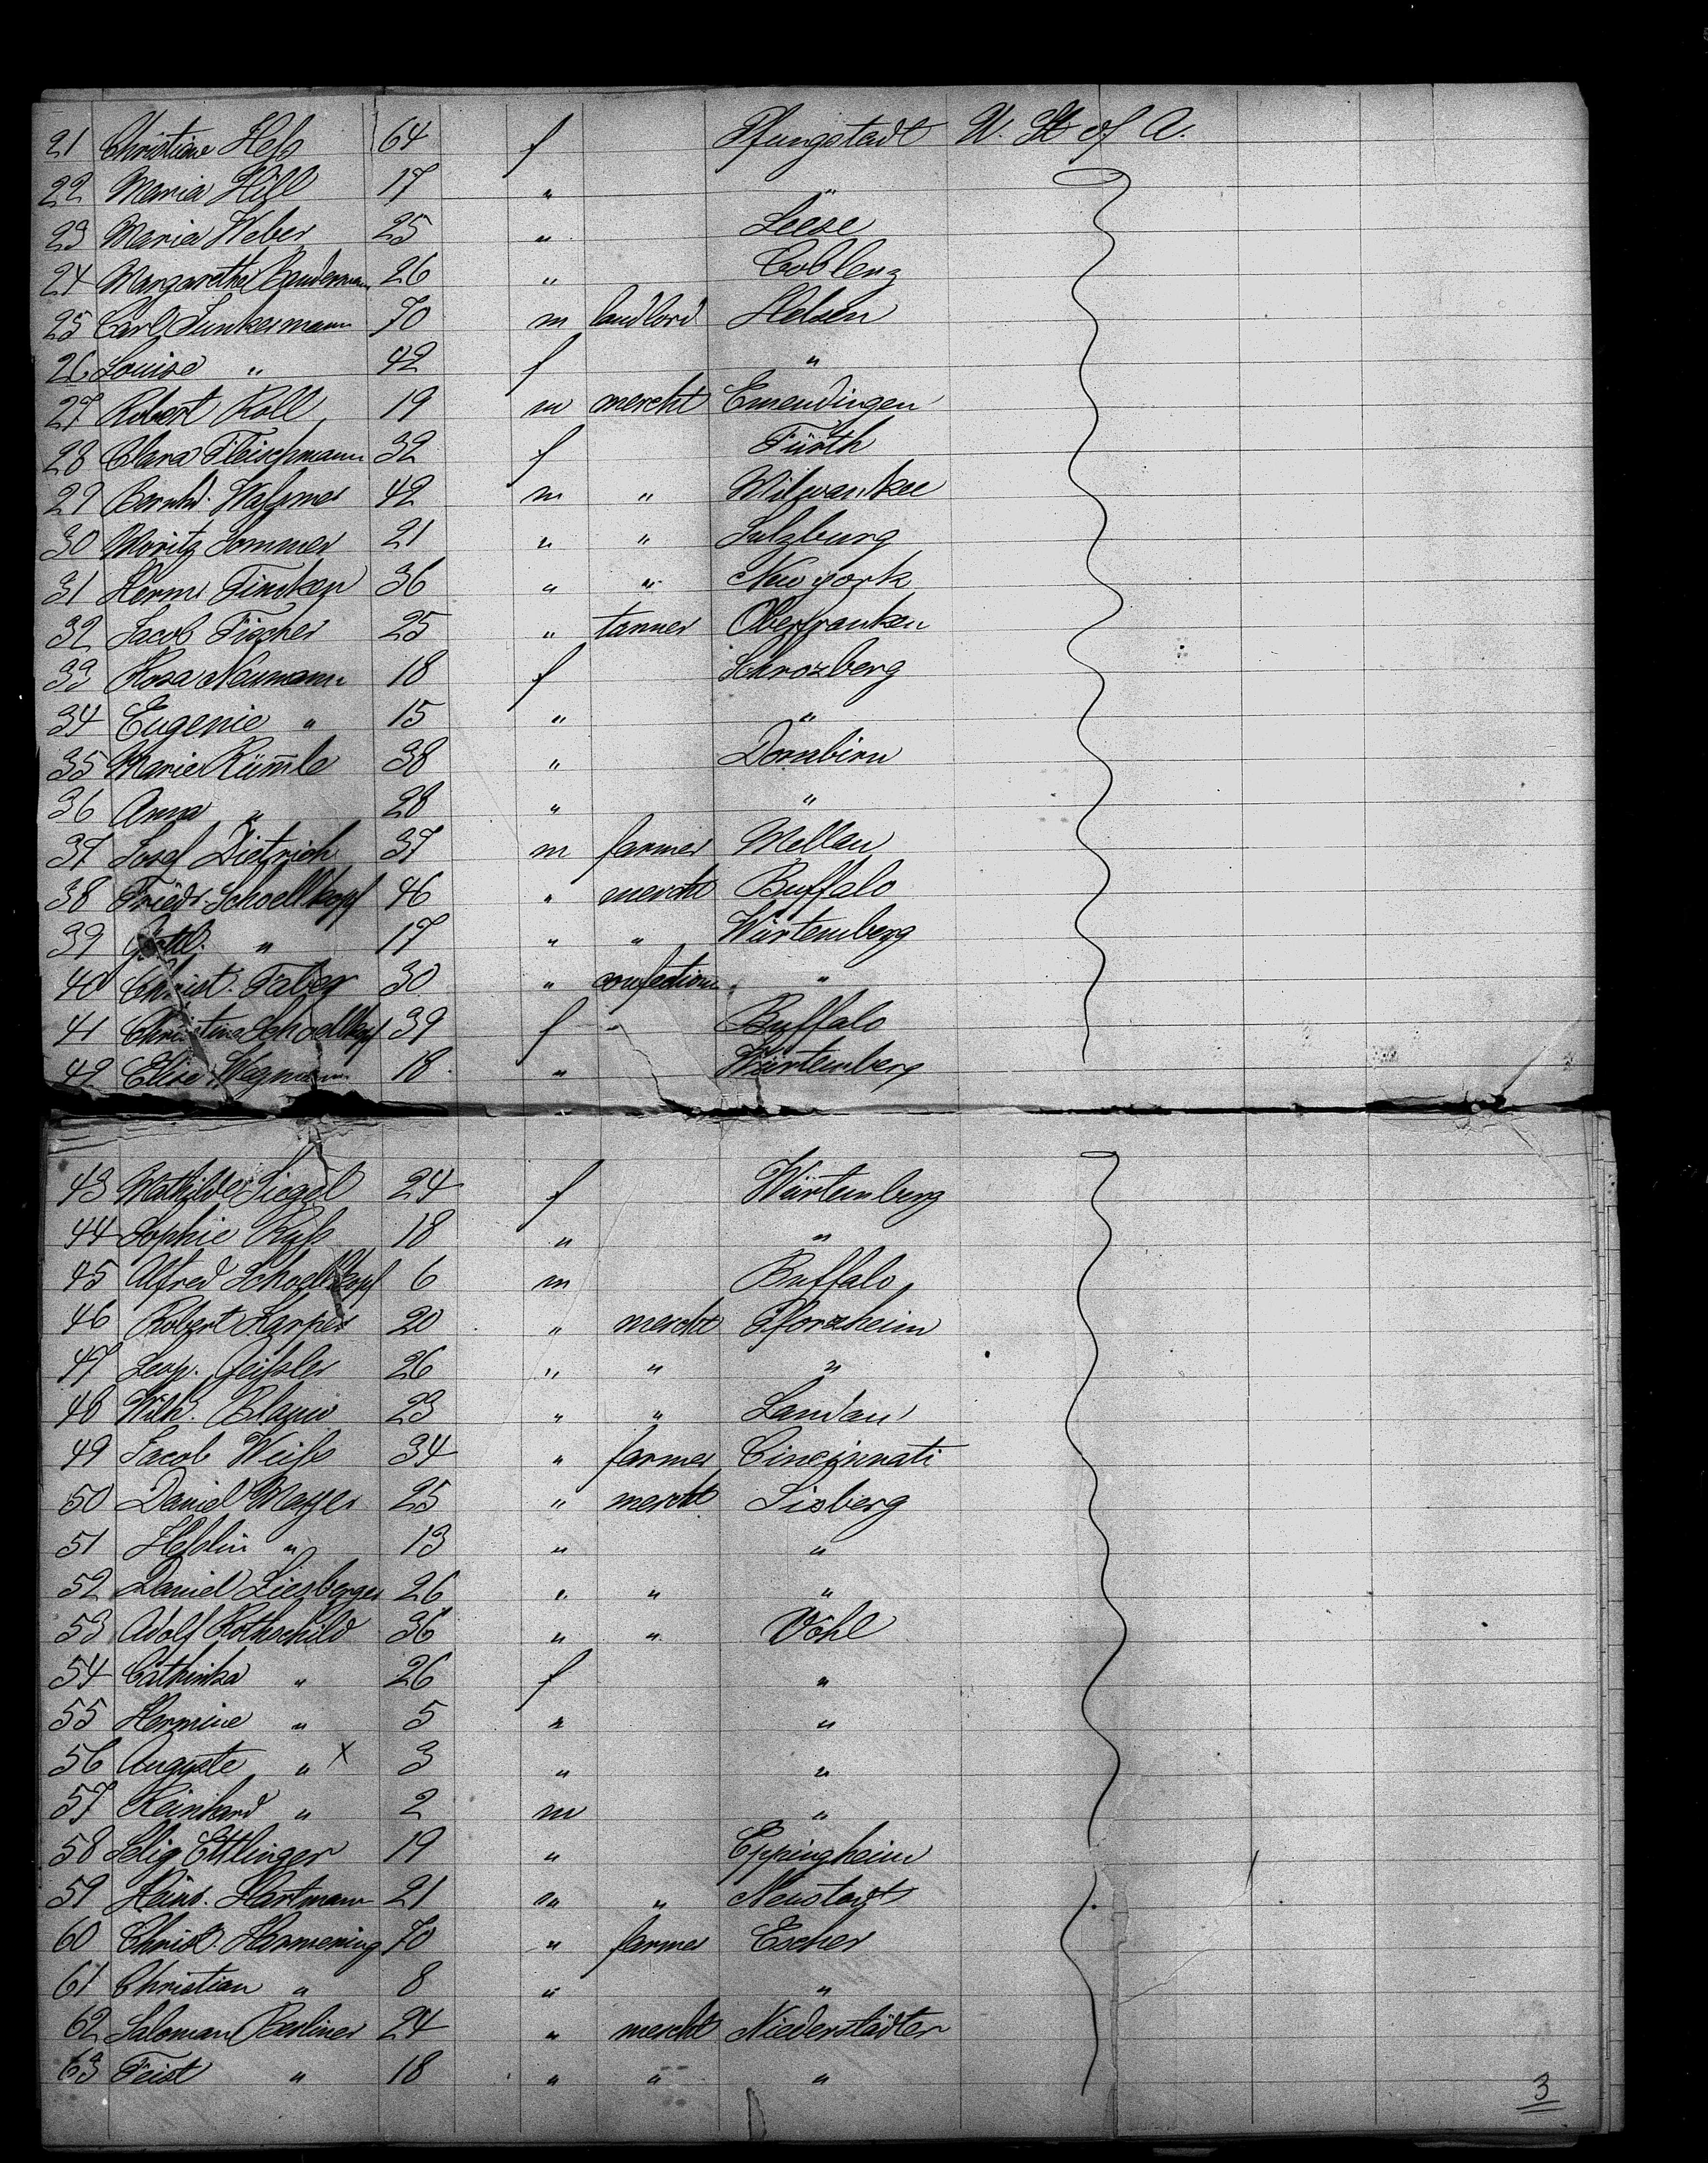 21 Christiane Heß 64 f Pfungstadt U. St of A.
22 Maria Hill 17 " "
23 Maria Weber 25 " Leese
24 Margaretha 26 " Coblenz
25 Carl Junkermann 70 m landlord Helsen
26 Louise " 42 f "
27 Robert Roll 19 m mercht Emendingen
28 Clara Fleischmann 32 f Fürth
29 Bernhd. 42 m " Milwaukee
30 Moritz Sommer 21 " " Sulzburg
31 Herm. Timken 36 " " New york
32 Jacob Fischer 25 " tanner Oberfranken
33 Rosa Neumann 18 f Schrozberg
34 Eugenie " 15 " "
35 Marie Rümmle 38 " Dornbirn
36 Anna " 28 " "
37 Josef Dietrich 37 m farmer Mellau
38 Friedr. Schoellkopf 46 " mercht Buffalo
39 Gottl. " 17 " " Würtemberg
40 Christ. Faber 30 " confection. "
41 Christina Schoellkopf 39 f " Buffalo
42 Elise Wegmann 18 " Würtemberg
43 Mathilde Siegel 24 f Würtemberg
44 Sophie Ruß 18 " "
45 Alfred Schoellkopf 6 m Buffalo
46 Robert 20 " mercht Pforzheim
47 Leop. Geißler 26 " " "
48 Wilh. 23 " " Landau
49 Jacob Weiß 34 " farmer Cincinnati
50 Daniel Mayer 25 " mercht Lisberg
51 " 13 " "
52 Daniel Liesberger 26 " " "
53 Adolf Rothschild 36 " " Vöhl
54 Cathinka " 26 f "
55 Hermine " 5 " "
56 Auguste " x 3 " "
57 Reinhard " 2 m "
58 Selig Ettlinger 19 " Eppingheim
59 Heinr. Hartmann 21 m " Neustadt
60 Christ. Harmening 70 " farmer Escher
61 Christian " 8 " "
62 Saloman Berliner 24 " mercht Niederstädter
63 Feist " 18 " " "
3